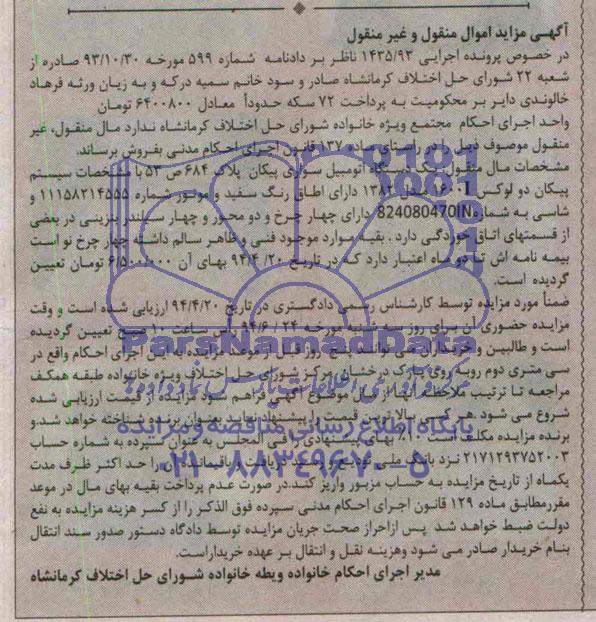 آگهی مزاید اموال منقول و غیر منقول
در خصوص پرونده اجرایی ۱۴۳۵/۹۳ ناظر بر دادنامه شماره ۵۹۹ مورخه ۹۳/۱۰/۳۰ صادره از
شعبه ۲۲ شورای حل اختلاف کرمانشاه صادر و سود خانم سمیه درکه و به زیان ورثه فرهاد
خالوندی دایر بر محکومیت به پرداخت ۷۲ سکه حدوداً معادل ۶۴۰۰۸۰۰ تومان
واحد اجرای احکام مجتمع ویژه خانواده شورای حل اختلاف کرمانشاه ندارد مال منقول، غیر
منقول موصوف ذیل را در راستای ماده ۱۳۷ قانون اجرای احکام مدنی بفروش برساند.
مشخصات مال منقول: یک دستگاه اتومبیل سواری پیکان پلاک ۶۸۴ ص ۵۳ با مشخصات سیستم
پیکان دو لوکس ۱۶۰۰I مدل ۱۳۸۲ دارای اطاق رنگ سفید و موتور شماره ۱۱۱۵۸۲۱۴۵۵۵ و
شاسی به شماره 824080470IN دارای چهار چرخ و دو محور و چهار سیلندر بنزینی در بعضی
از قسمتهای اتاق خوردگی دارد . بقیه موارد موجود فنی و ظاهر سالم داشته چهار چرخ نو است
بیمه نامه اش تا دو ماه اعتبار دارد که در تاریخ ۹۴/۴/۲۰ بهای آن ۶/۵۰۰/۰۰۰ تومان تعیین
گردیده است.
ضمناً مورد مزایده توسط کارشناس رسمی دادگستری در تاریخ ۹۴/۴/۲۰ ارزیابی شده است و وقت
مزایده حضوری آن برای روز شنبه مورخه ۹۴/۶/۲۴ راس ساعت ۱۰ صبح تعیین گردیده
است و طالبین و خریداران می توانند پنج روز قبل از موعد مزایده به این اجرای احکام واقع در
سی متری دوم روبه روی پارک درخشان مرکز شورای حل اختلاف ویژه خانواده طبقه همکف
مراجعه تا ترتیب ملاحظه آنها از مال موضوع آگهی فراهم شود مزایده از قیمت ارزیابی شده
شروع می شود هر کسی بالاترین قیمت را پیشنهاد نماید بعنوان برنده شناخته خواهد شد.و
برنده مزایده مکلف است ۱۰٪ بهای پیشنهادی را فی المجلس به عنوان سپرده به شماره حساب
۲۱۷۱۲۹۳۷۵۲۰۰۳ نزد بانک ملی تودیع و رسید دریافت و باقیمانده را حد اکثر ظرف مدت
یکماه از تاریخ مزایده به حساب مزبور واریز کنند.در صورت عدم پرداخت بقیه بهای مال در موعد
مقررمطابق ماده ۱۲۹ قانون اجرای احکام مدنی سپرده فوق الذکر را از کسر هزینه مزایده به نفع
دولت ضبط خواهد شد پس ازاحراز صحت جریان مزایده توسط دادگاه دستور صدور سند انتقال
بنام خریدار صادر می شود وهزینه نقل و انتقال بر عهده خریداراست.
مدیر اجرای احکام خانواده ویطه خانواده شورای حل اختلاف کرمانشاه
ParsNamadData
پایگاه اطلاع رسانی مناقصه و مزایده
۰۲۱-۸۸۳۴۹۶۷۰-۵